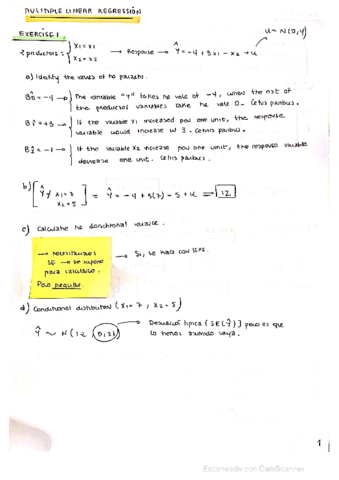 MULITIPLE LINEAR REGRESSIÓN
EXERCISE 1
u ~ N(0,4)
2 predictors: { x1 = x1
x2 = x2
→ Response → Ŷ = -4 + 3x1 - x2 + u
a) Identify the values of the
B̂0 = -4 → The variable "y" takes the vale of -4, when the rest of
the variables take the vale 0. Cetris paribus.
B̂1 = +3 → If the variable x1 increased pow one unit, the response
variable would increase w 3. Cetris paribus.
B̂2 = -1 → If the variable x2 increase pow one unit, the response variable
decrease one unit. Cetris paribus.
b) [Ŷ / x1 = 7
x2 = 5] = Ŷ = -4 + 3(7) - 5 + u = 12
c) Calculate the
→ necesitamos
SE → se supone
para calcularlo.
→ Si, se hace con
Para
d) Conditional distribution (x1 = 7 ; x2 = 5)
Ŷ ~ N (12, → Desviación típica (SE(Ŷ)) pero es que
lo hemos
1
Escaneado con CamScanner